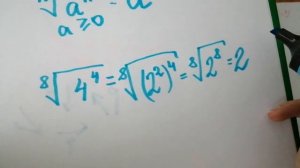 ⁿ√aⁿ = a
a ≥ 0
⁸√4⁴ = ⁸√(2²)⁴ = ⁸√2⁸ = 2